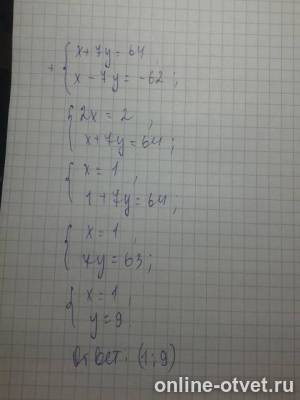 + { x+7y=64
x-7y=-62;
{ 2x=2,
x+7y=64;
{ x=1,
1+7y=64;
{ x=1,
7y=63;
{ x=1,
y=9
Ответ: (1; 9)
online-otvet.ru